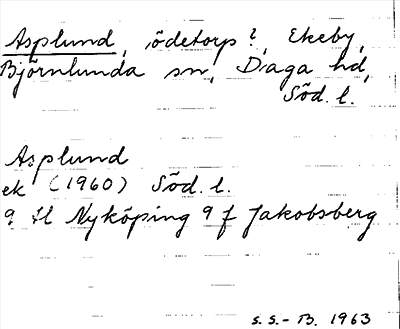 Asplund, ödetorp?, Ekeby,
Björnlunda sn, Daga hd,
Söd. l.
Asplund
ek (1960) Söd. l.
9 Nyköping 9 f Jakobsberg
S.S.-B. 1963